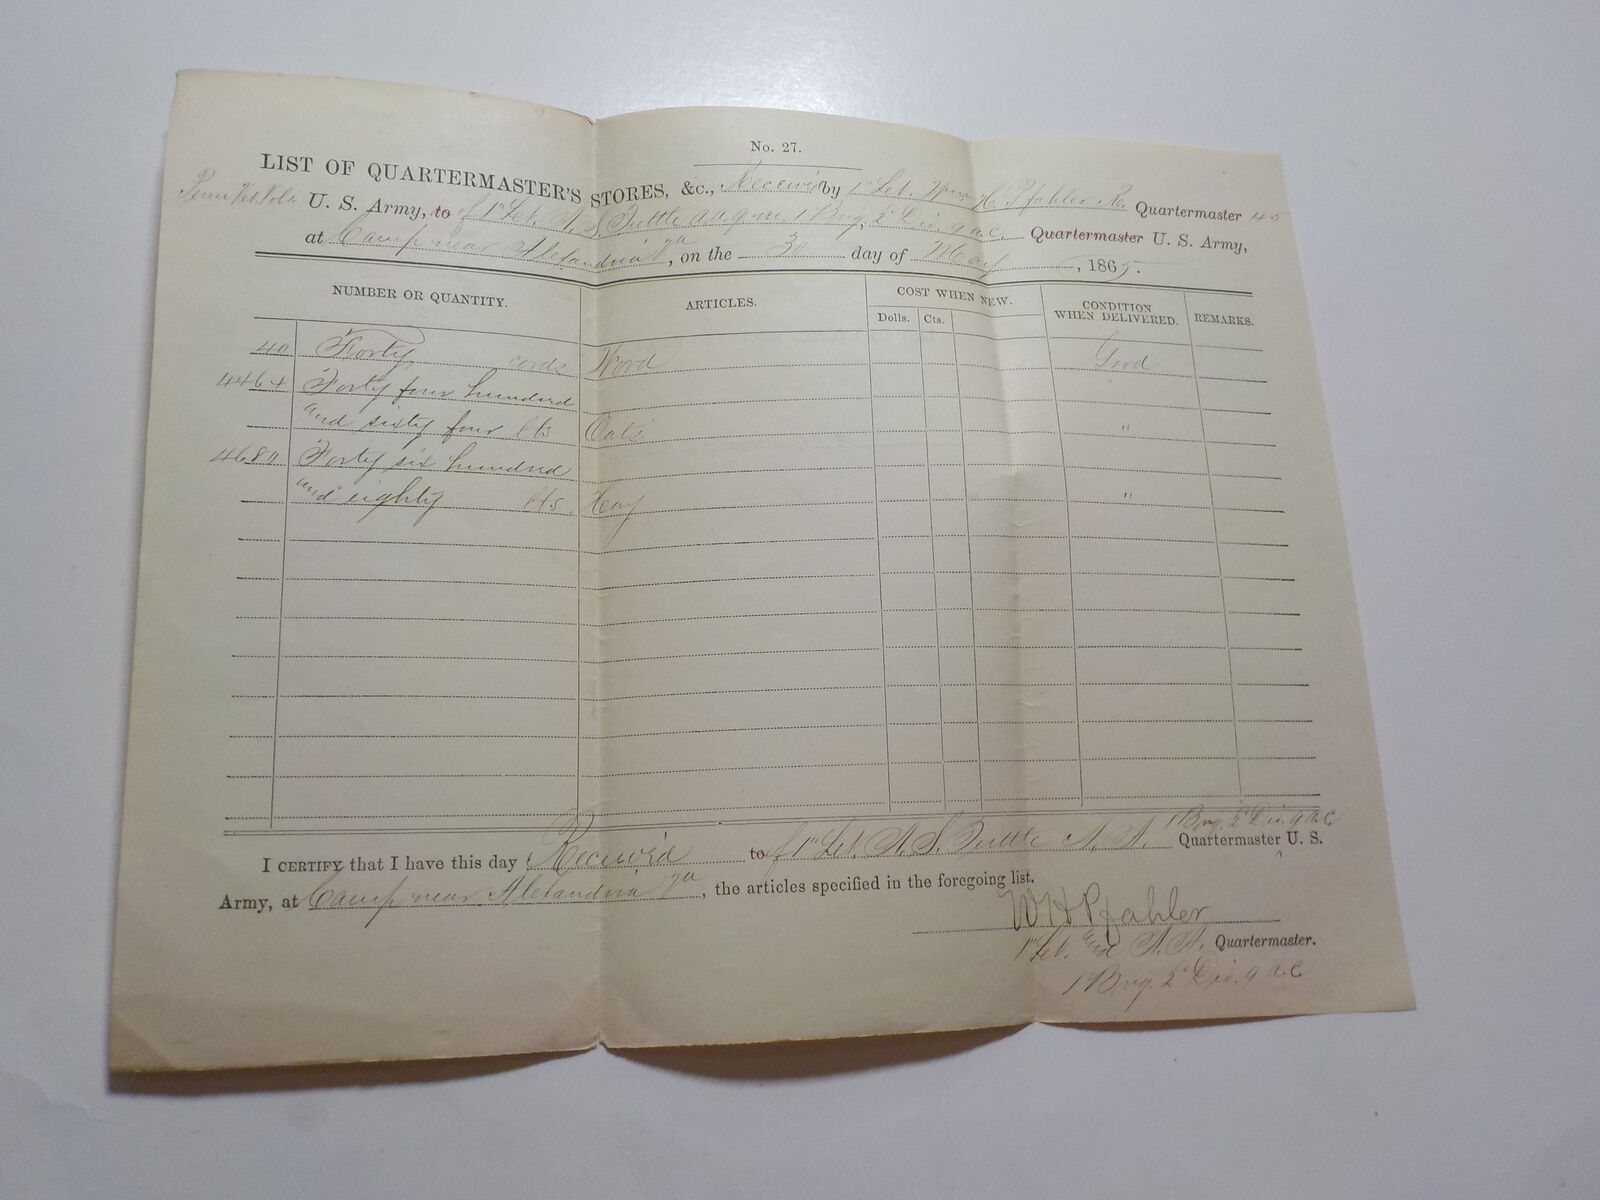 No. 27.
LIST OF QUARTERMASTER'S STORES, &c., Received by 1st Lt. Wm. H. Pfahler R. Quartermaster 45
Penn Vet Vols U. S. Army, to of 1st Lt. A. S. Tuttle a a q m. 1 Brig, 2d Div 9 a. c. Quartermaster U. S. Army,
at Camp near Alexandria Va, on the 30 day of May, 1865.
NUMBER OR QUANTITY. ARTICLES. COST WHEN NEW. CONDITION WHEN DELIVERED. REMARKS.
Dolls. Cts.
40 Forty cords Wood Good
4464 Forty four hundred
and sixty four lbs Oats "
4680 Forty six hundred
and eighty lbs. Hay "
1 Brig. 2d Div. 9 a. c
I CERTIFY that I have this day Received to of 1st Lt. A. S. Tuttle A. A. Quartermaster U. S.
Army, at Camp near Alexandria Va, the articles specified in the foregoing list.
W H Pfahler
1st Lt. and A. A. Quartermaster.
1 Brig. 2d Div. 9 a. c